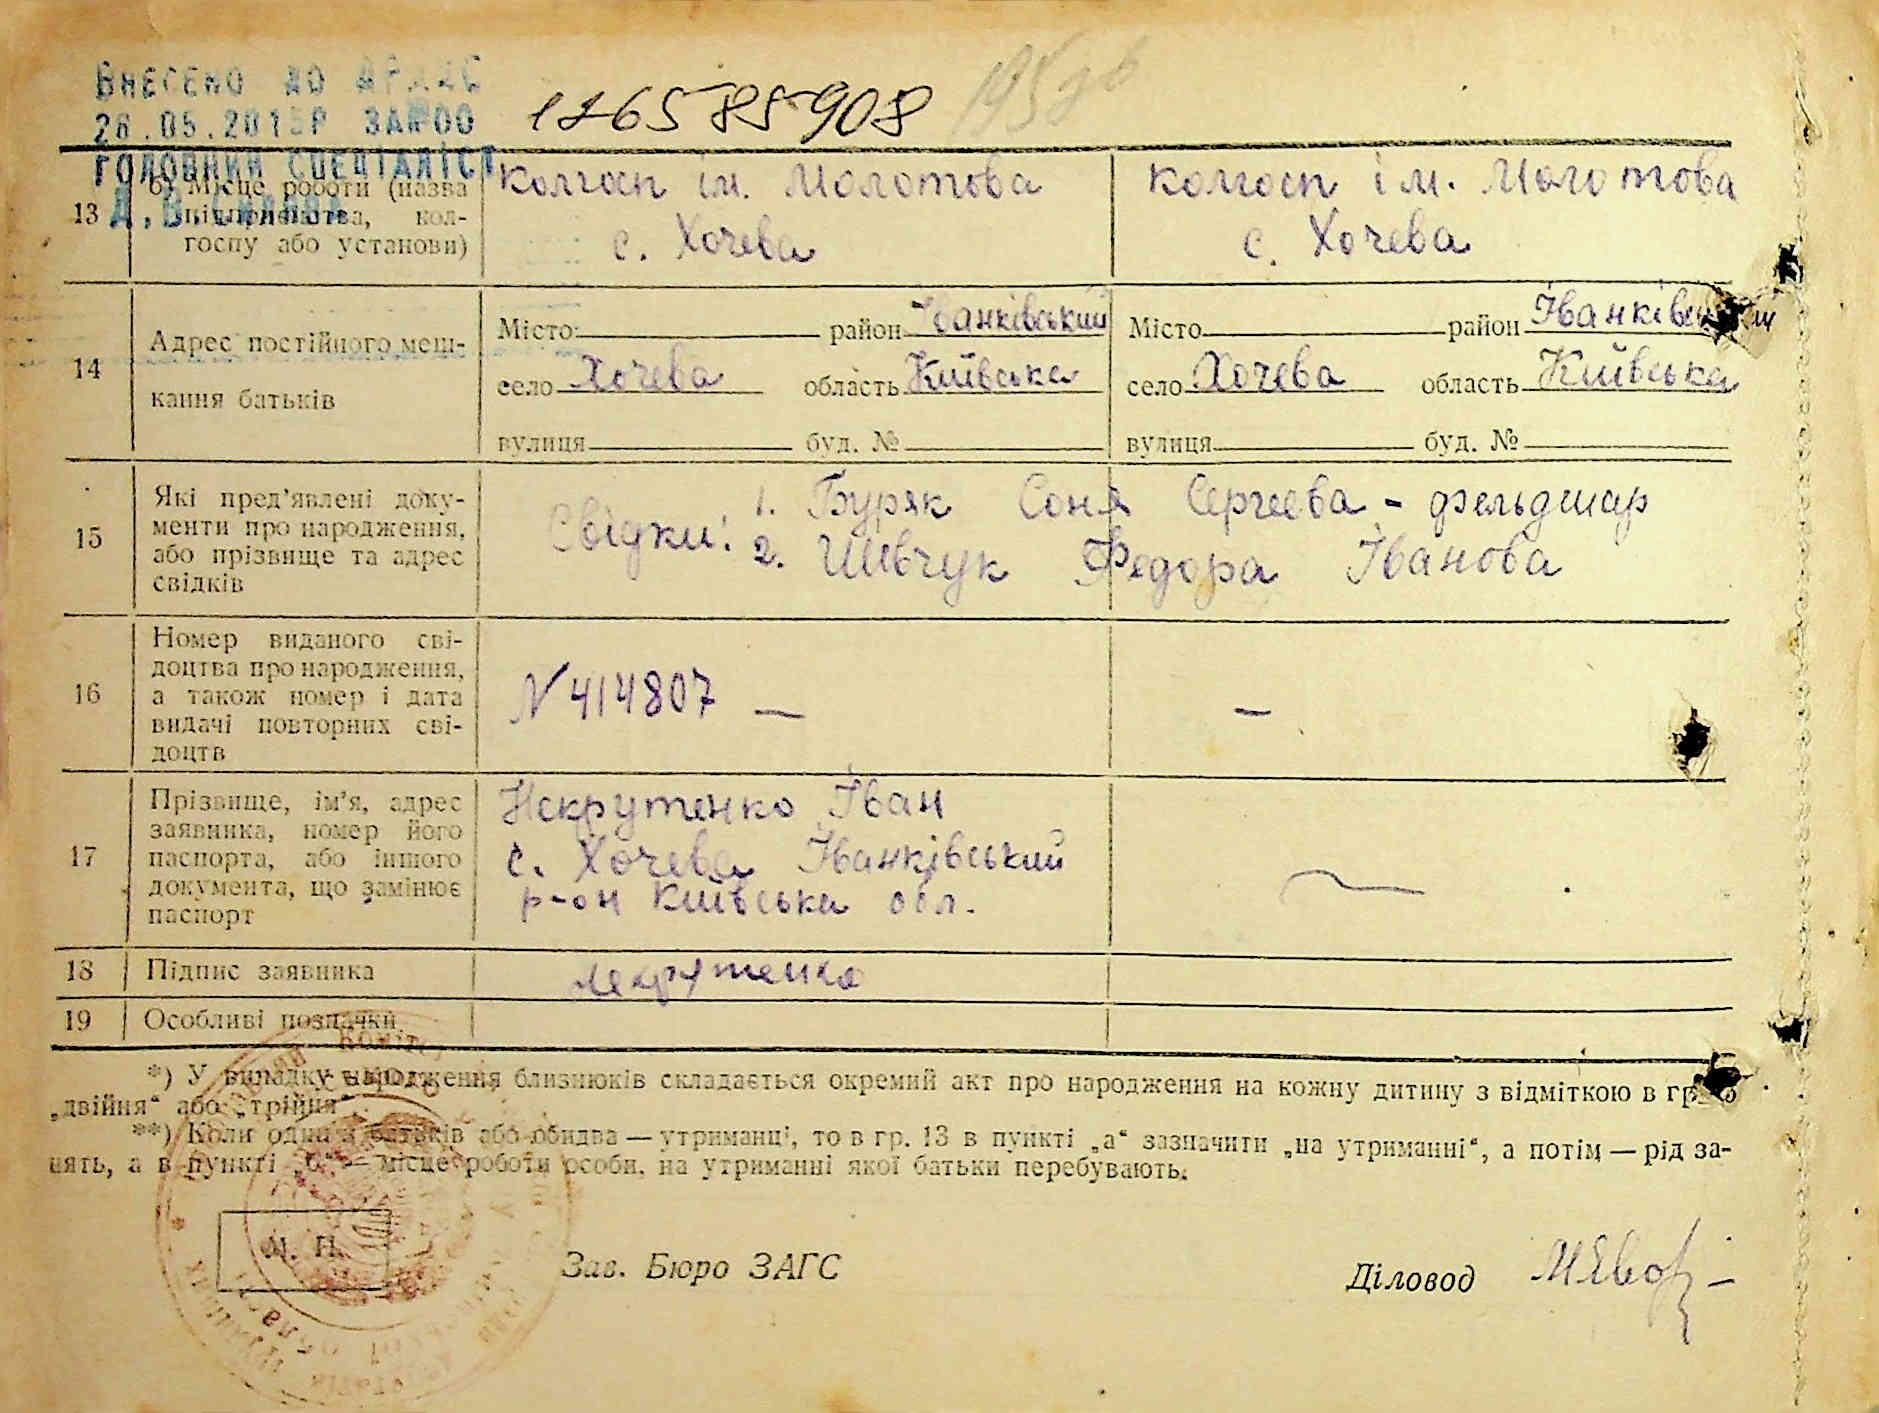 Внесено до
26.05.201 р
головний спеціаліст
13
б) Місце роботи (назва
підприємства, кол-
госпу або установи)
колгосп ім. Молотова
с. Хочева
колгосп ім. Молотова
с. Хочева
14
Адрес постійного меш-
кання батьків
Місто район Іванківський
село Хочева область Київська
вулиця буд. №
Місто район Іванківський
село Хочева область Київська
вулиця буд. №
15
Які пред’явлені доку-
менти про народження,
або прізвище та адрес
свідків
Свідки: 1. Буряк Соня Сергеева - фельдшар
2. Шевчук Федора Іванова
16
Номер виданого сві-
доцтва про народження,
а також номер і дата
видачі повторних сві-
доцтв
N 414807 —
—
17
Прізвище, ім’я, адрес
заявника, номер його
паспорта, або іншого
документа, що замінює
паспорт
Некрутенко Іван
с. Хочева Іванківський
р-он Київська обл.
18
Підпис заявника
Некрутенко
19
Особливі позначки
*) У випадку народження близнюків складається окремий акт про народження на кожну дитину з відміткою в гр.
„двійня“ або „трійня“.
**) Коли один з батьків або обидва — утриманці, то в гр. 13 в пункті „а“ зазначити „на утриманні“, а потім — рід за-
нять, а в пункті „б“ — місце роботи особи, на утриманні якої батьки перебувають.
М. П.
Зав. Бюро ЗАГС
Діловод